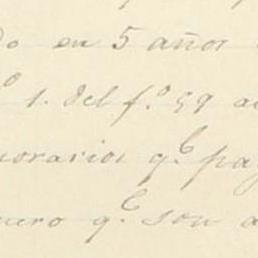 do en 5 años
o 1. del f.o 59 a
norarios q.e pag
nero q.e son a